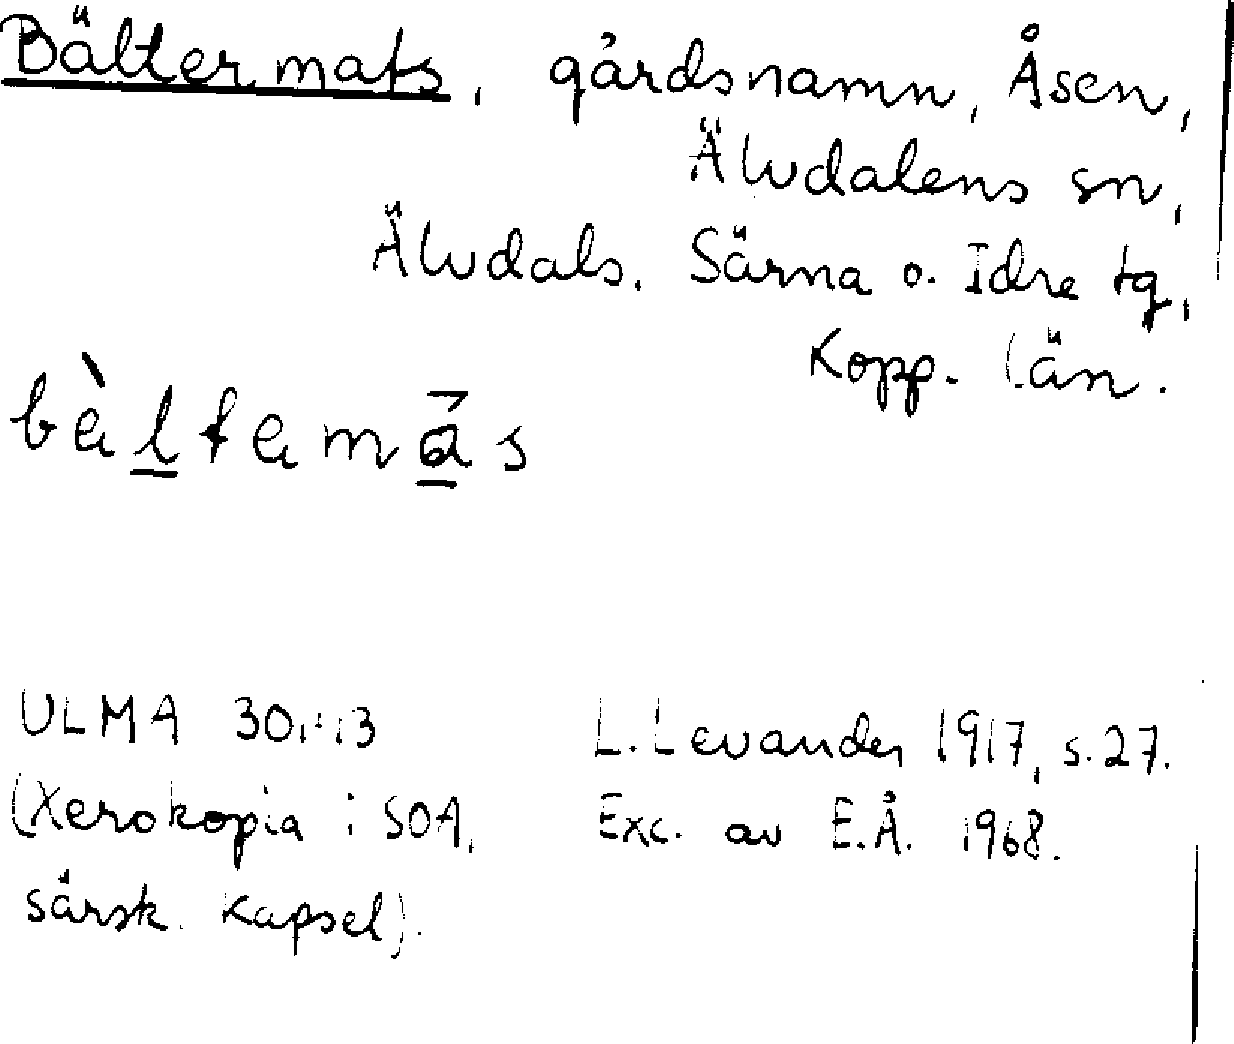 Bälter mats, gårdsnamn, Åsen,
Älvdalens sn,
Älvdals, Särna o. Idre tg,
Kopp. län.
bæ̀ltæmas
ULMA
L. Levander 1917, s. 27.
(Xerokopia i SOA,
Exc. av E.Å. 1968.
särsk. kapsel).